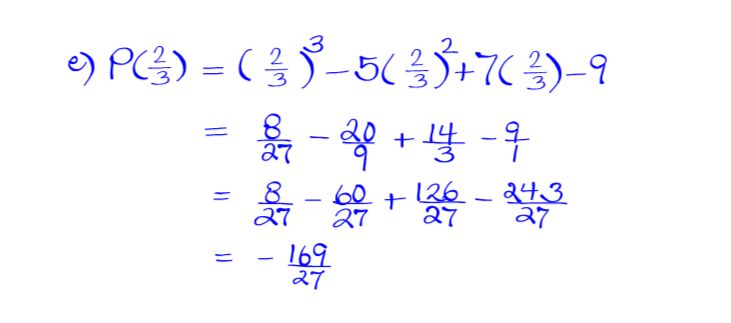 e) P(2/3) = (2/3)³ - 5(2/3)² + 7(2/3) - 9
= 8/27 - 20/9 + 14/3 - 9/1
= 8/27 - 60/27 + 126/27 - 243/27
= - 169/27